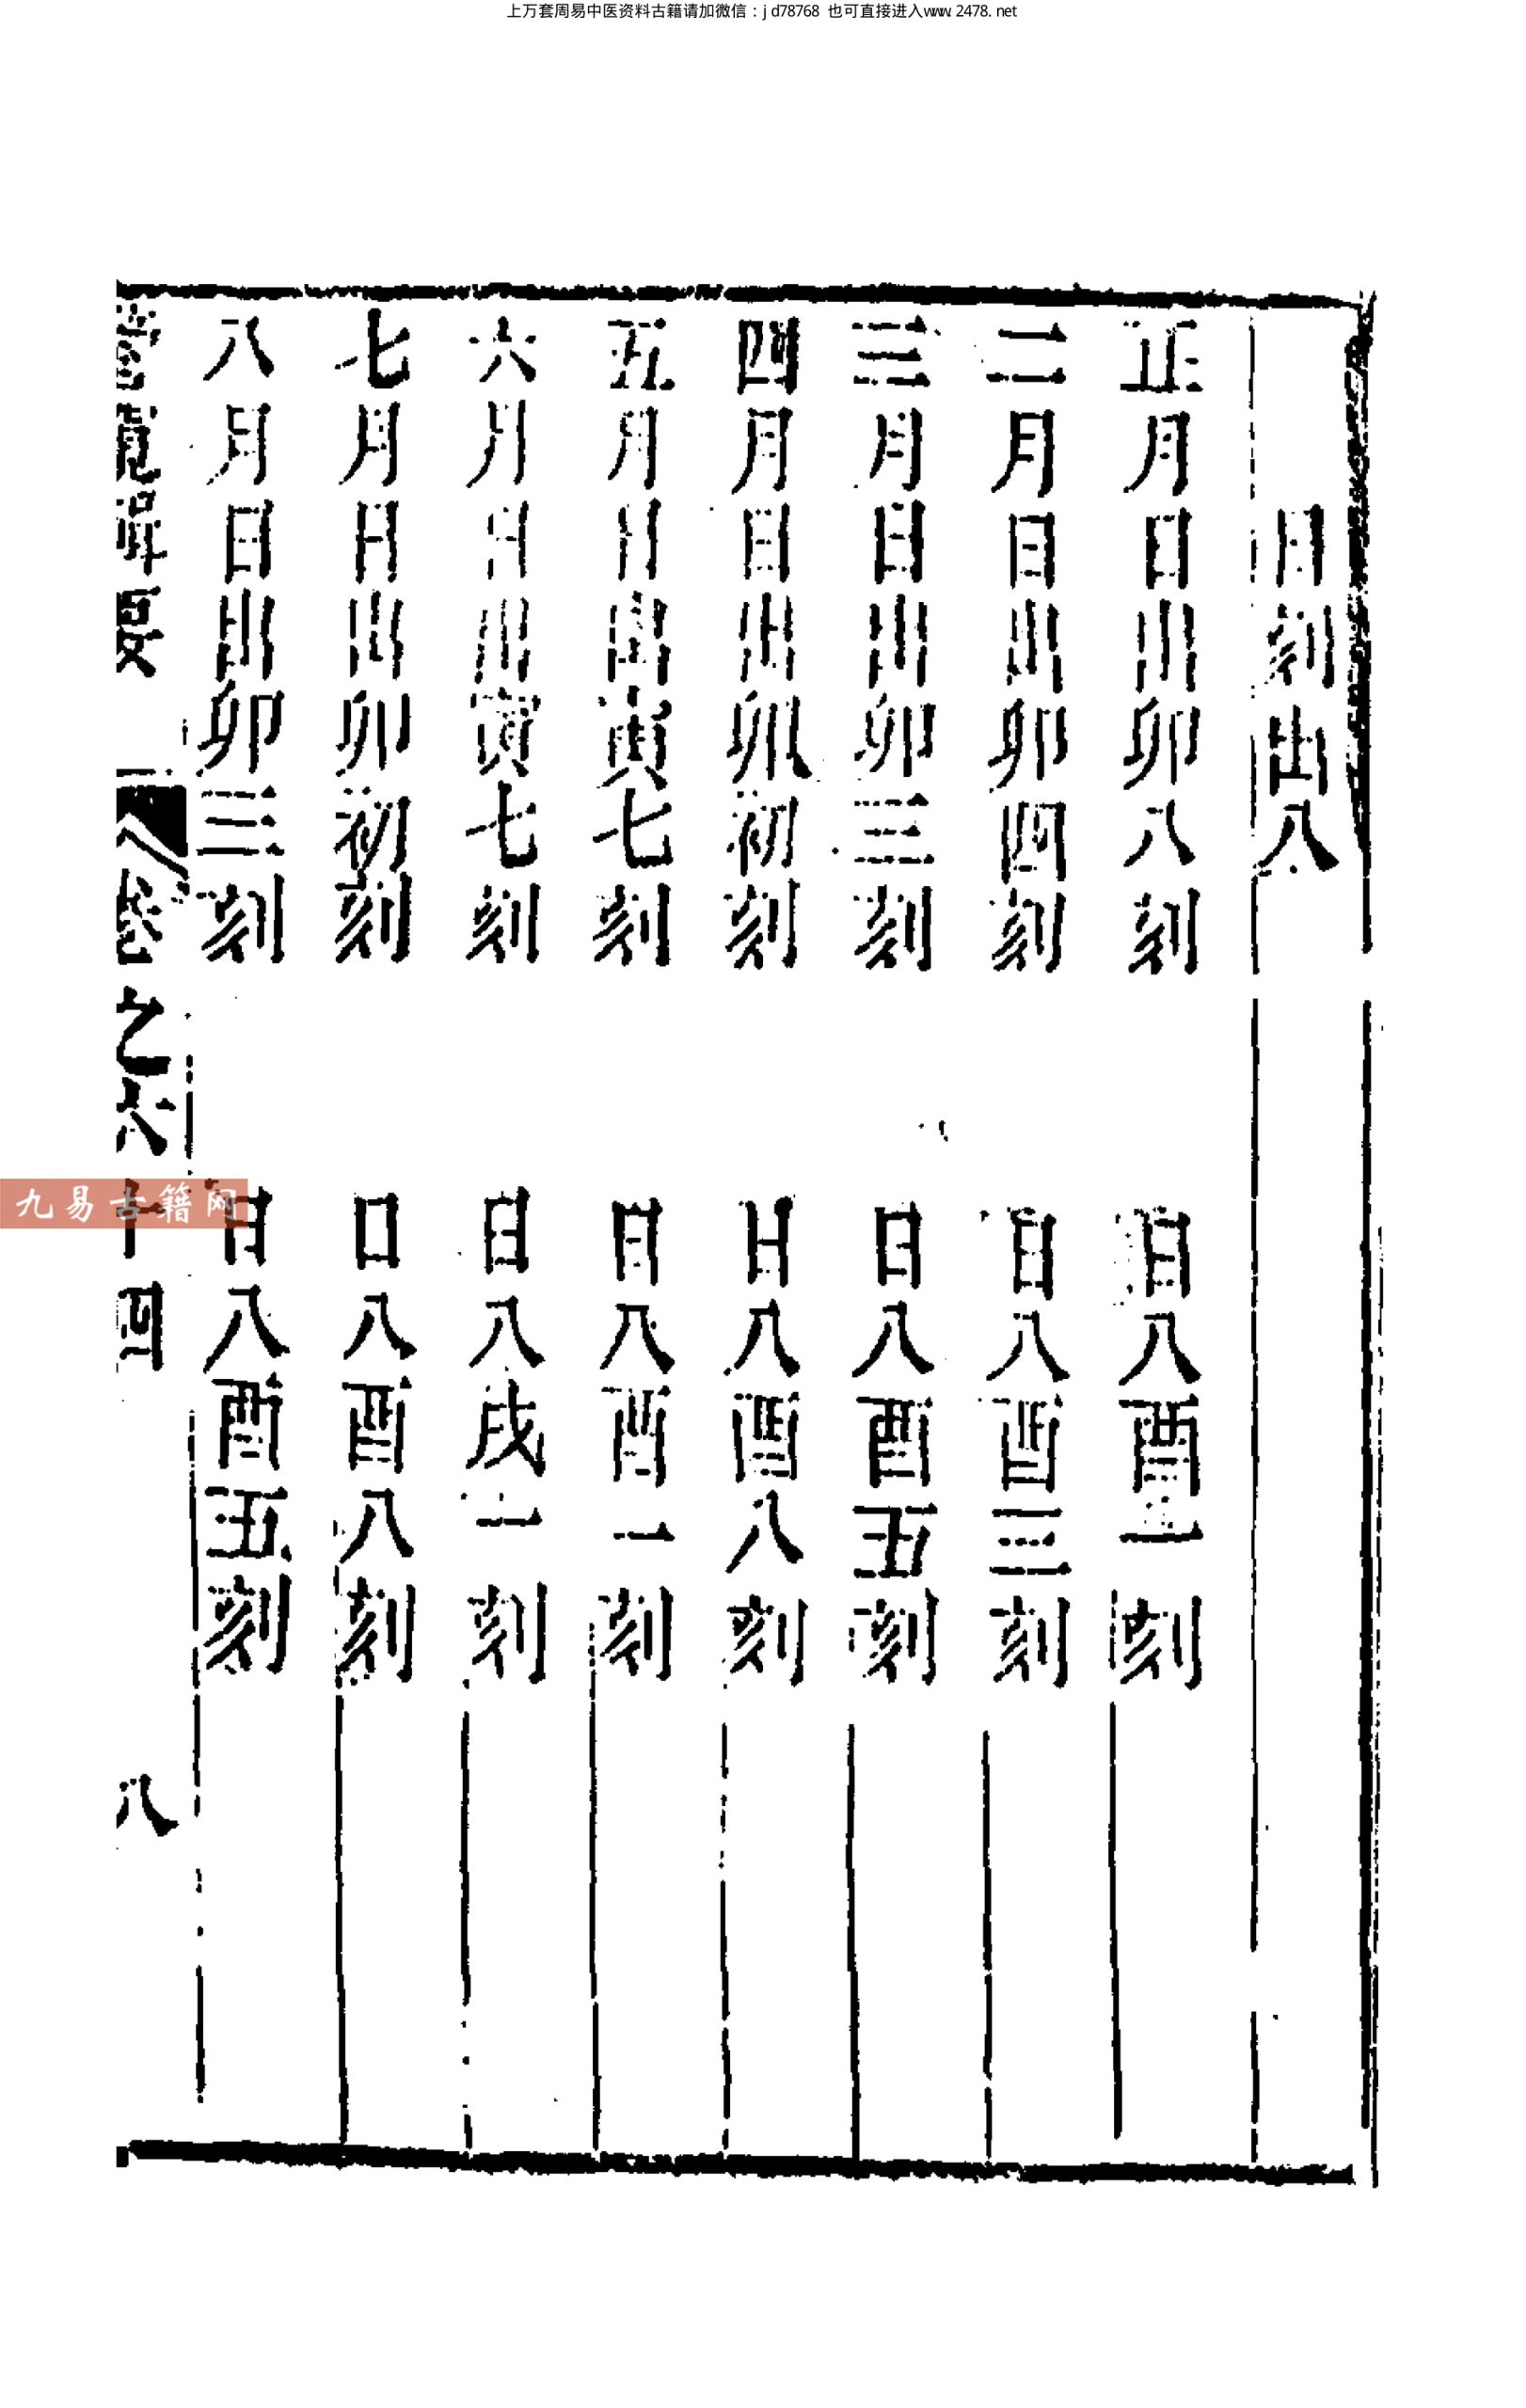 上万套周易中医资料古籍请加微信：jd78768 也可直接进入www.2478.net
日刻出入
正月日出卯八刻 日入酉一刻
二月日出卯四刻 日入酉三刻
三月日出卯三刻 日入酉五刻
四月日出卯初刻 日入酉八刻
五月日出寅七刻 日入酉一刻
六月日出寅七刻 日入戌一刻
七月日出卯初刻 日入酉八刻
八月日出卯三刻 日入酉五刻
管窺輯要 卷之六十四 八
九易古籍网